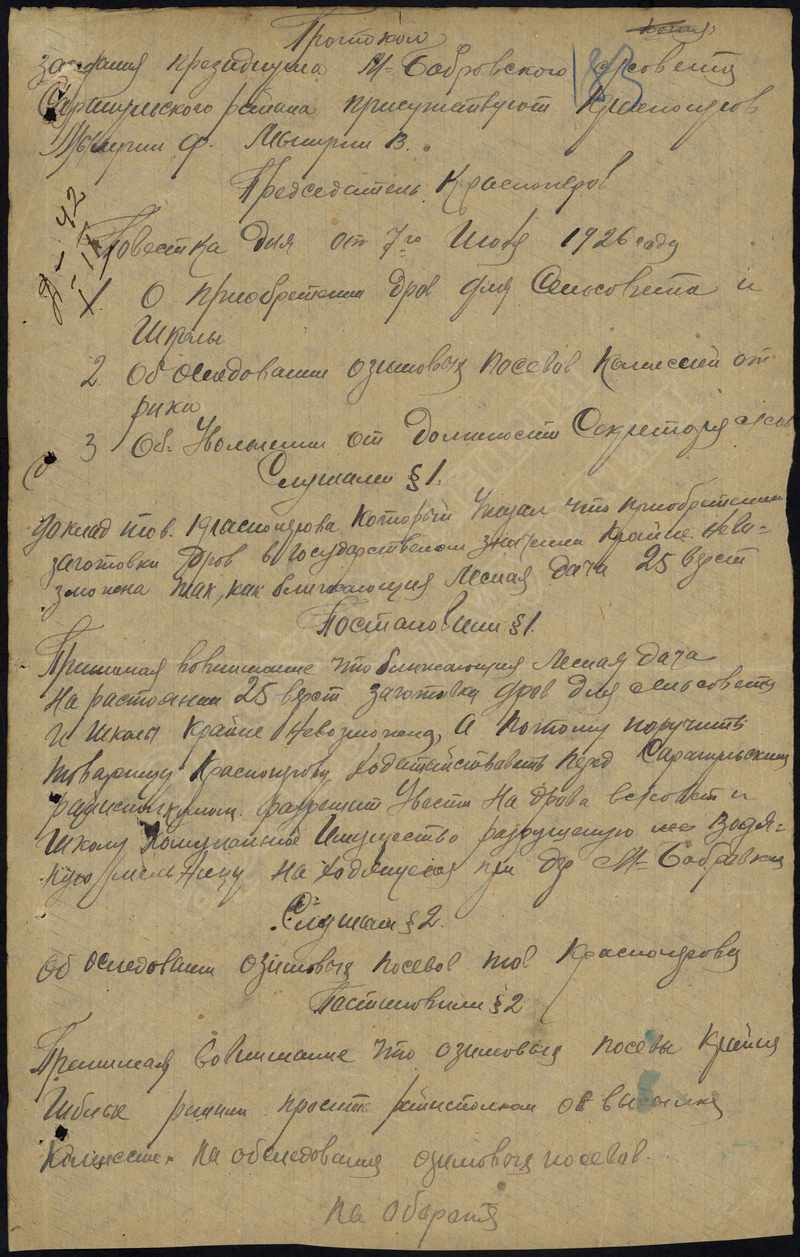 Протокол
заседания президиума М-Бобровского с/совета
Сарапульского района присутствуют Красноперов
Мымрин Ф. Мымрин В.
Председатель Красноперов
Повестка дня от 7го Июня 1926 году
1. О приобретении дров для Сельсовета и
Школы
2 Об оследовании озимовых посевов Комиссией от
рика
3 Об Увольнении от должности Секретаря с/сов
Слушали § 1.
Доклад тов. Красноперова который Указал что приобретении
заготовки дров в государственом значении крайне нево-
зможена так, как ближающия Лесная дача 25 верст
Постановили § 1.
Принимая вовнимание что ближающия Лесная дача
На растоянии 25 верст заготовки дров для сельсовета
и школы крайне невозможена, А потому поручить
товарищу Красноперову ходатействовать перед Сарапульским
райисполкомом разрешит Увести на дрова в с/совет и
Школу Имущество разрушеную водя-
ную мельницу На ходящуюся при дер М-Бобровки
Слушали § 2.
Об оследовании озимовых посевов тов Красноперова
Постановили § 2
Принимая Вовнимание что озимовыя посевы крайня
решили просить райисполком об высылке
Комиссие на обследования озимовых посевов.
на обороте